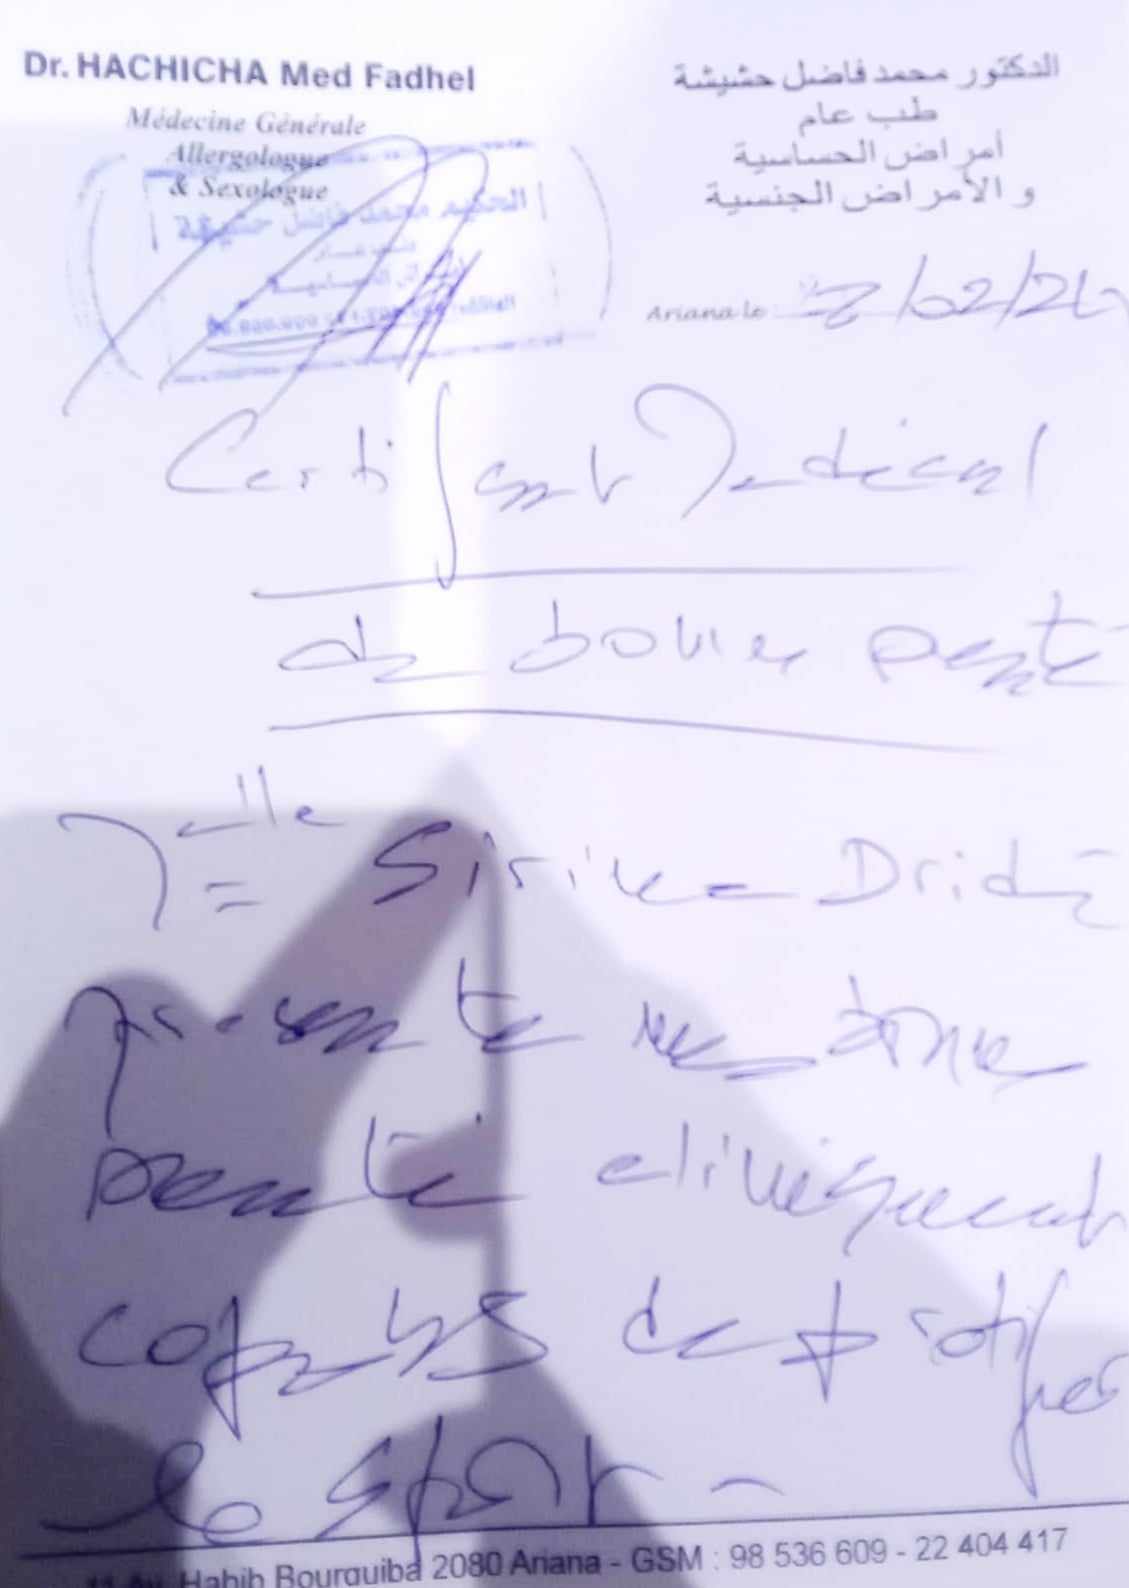 Dr. HACHICHA Med Fadhel
Médecine Générale
Allergologue
& Sexologue
الدكتور محمد فاضل حشيشة
طب عام
أمراض الحساسية
و الأمراض الجنسية
الحكيم محمد فاضل حشيشة
Ariana le /02/26
Certificat Médical
de bonne santé
Melle Sirine Dridi
présente une bonne
santé cliniquement
capable de pratiquer
le sport -
Av. Habib Bourguiba 2080 Ariana - GSM : 98 536 609 - 22 404 417